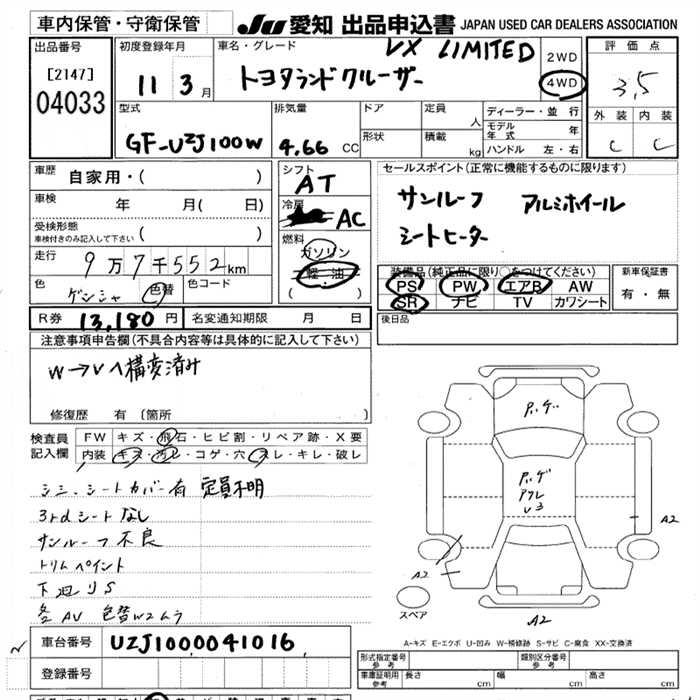 車内保管・守衛保管
JU 愛知 出品申込書 JAPAN USED CAR DEALERS ASSOCIATION
出品番号
[2147]
04033
初度登録年月
11 3月
車名・グレード
VX LIMITED
トヨタランドクルーザー
2WD
4WD
評価点
3,5
外装 内装
C C
型式
GF-UZJ100W
排気量
4.66 CC
ドア
形状
定員 人
積載 kg
ディーラー・並行
モデル年式 年
ハンドル 左・右
車歴 自家用・( )
車検 年 月( 日)
受検形態
車検付きのみ記入して下さい ( )
走行 9万7千552km
色 ゲンシャ 色替 色コード
R券 13,180円 名変通知期限 月 日
シフト
AT
冷房
AC
燃料
ガソリン
軽油
( )
セールスポイント(正常に機能するものに限ります)
サンルーフ アルミホイール
シートヒーター
装備品(純正品に限り○をつけてください)
PS PW エアB AW
SR ナビ TV カワシート
新車保証書
有・無
後日品
注意事項申告欄(不具合内容等は具体的に記入して下さい)
W→Vへ構変済み
修復歴 有 (箇所 )
検査員記入欄
FW キズ・飛石・ヒビ割・リペア跡・X要
内装 キズ・汚レ・コゲ・穴・スレ・キレ・破レ
シミ、シートカバー有 定員不明
3rdシートなし
サンルーフ不良
トリムペイント
下廻りS
各AV 色替W2ムラ
車台番号 UZJ1000041016
登録番号
A2
A2
A2
スペア
A-キズ E-エクボ U-凹み W-補修跡 S-サビ C-腐食 XX-交換済
形式指定番号
参考
類別区分番号
参考
車庫証明用
参考
長さ cm 幅 cm 高さ cm